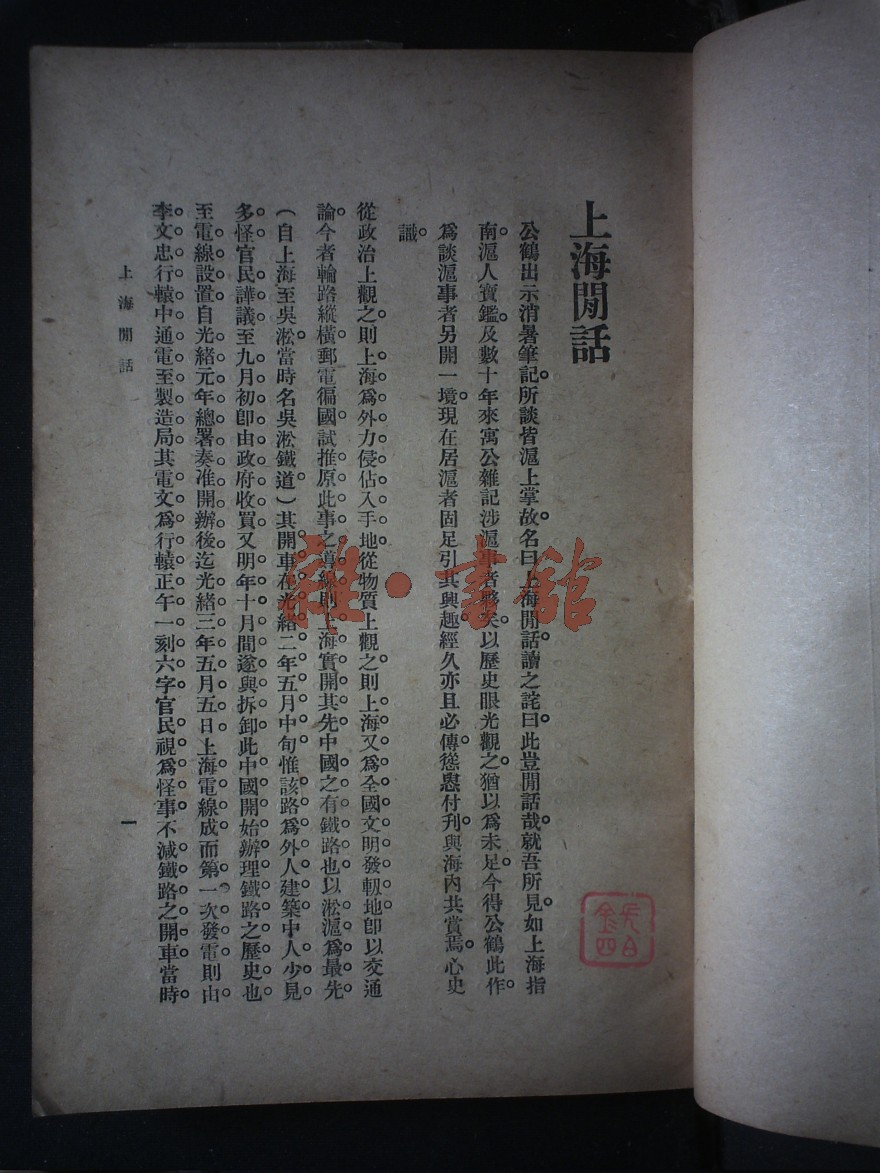 上海閒話
公鶴出示消暑筆記所談皆滬上掌故名曰上海閒話讀之詫曰此豈閒話哉就吾所見如上海指
南滬人寶鑑及數十年來寓公雜記涉滬事者夥矣以歷史眼光觀之猶以爲未足今得公鶴此作
爲談滬事者另開一境現在居滬者固足引其興趣經久亦且必傳慫恿付刋與海內共賞焉心史
識
從政治上觀之則上海爲外力侵佔入手地從物質上觀之則上海又爲全國文明發軔地卽以交通
論今者輪路縱橫郵電徧國試推原此事之導線則上海實開其先中國之有鐵路也以淞滬爲最先
(自上海至吳淞當時名吳淞鐵道)其開車在光緒二年五月中旬惟該路爲外人建築中人少見
多怪官民譁議至九月初卽由政府收買又明年十月間遂與拆卸此中國開始辦理鐵路之歷史也
至電線設置自光緒元年總署奏准開辦後迄光緒三年五月五日上海電線成而第一次發電則由
李文忠行轅中通電至製造局其電文爲行轅正午一刻六字官民視爲怪事不減鐵路之開車當時
上海閒話
一
雜·書館